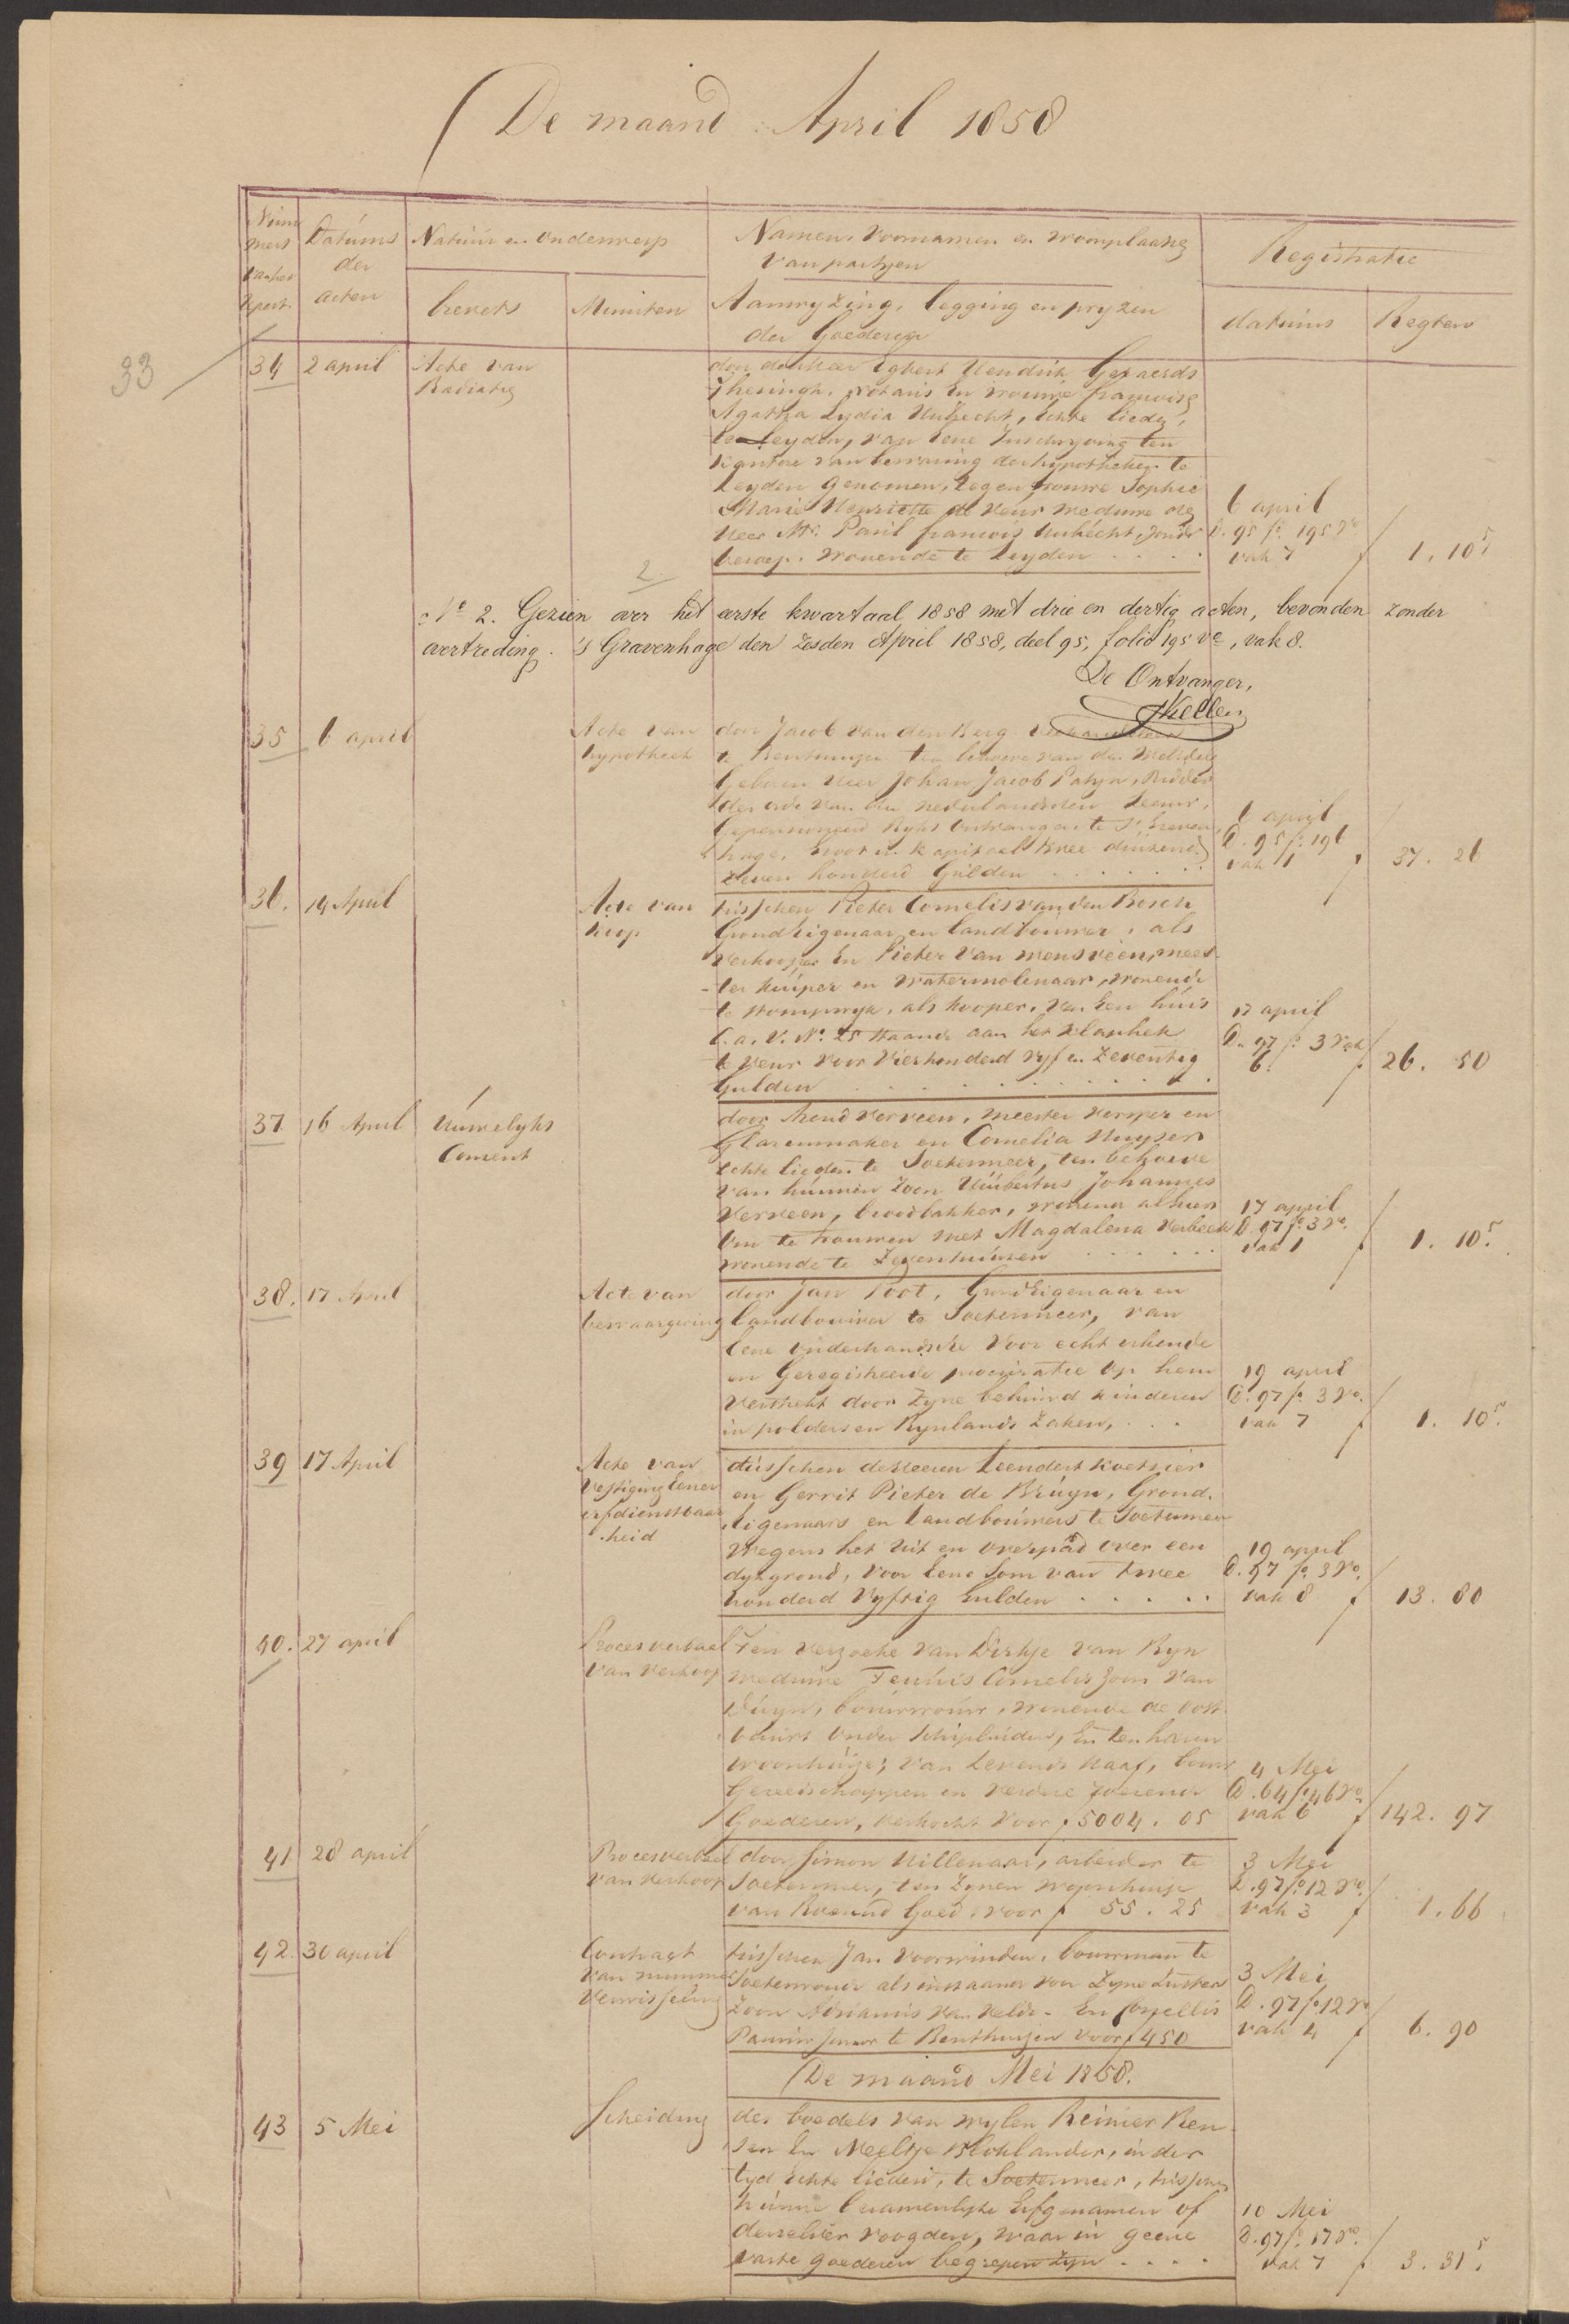 De maand April 1858
Num
mers
van het
Repert.
Datums
der
acten
Natuur en Onderwerp
brevets
Minuten
Namen, Voornamen en woonplaatse
van partyen
Aanwyzing, legging en pryzen
der Goederen
Registratie
datums
Regten
33
34
2 april
Acte van
Radiatie
door den Heer Egbert Hendrik Geraerds
Thesingh, notaris En vrouwe francoise
Agatha Lydia Unhecht, Echte lieden,
te Leyden, van Eene Inschryving ten
kantore van bewaring der hypotheken te
Leyden genomen, tegen vrouwe Sophie
Marie Henriette de Veur weduwe de
Heer Mr. Paul francois Unhecht, zonder
beroep, wonende te Leyden . . . .
6 april
D. 95 fo. 195 Vo
vak 7 f
1. 10 5
2
No 2. Gezien over het eerste kwartaal 1858 met drie en dertig acten, bevonden zonder
overtreding. 's Gravenhage den zesden April 1858, deel 95, folio 195 Vo, vak 8.
De Ontvanger,
35
6 april
Acte van
hypotheek
door Jacob van den Berg
te Benthuizen ten behoeve van den Weledele
Geboren Heer Johan Jacob Patyn, Ridder
der orde van den nederlandschen Leeuw,
Gepensioneerd Ryks Ontvanger te 's Graven,
hage, groot in kapitaal twee duizend
zeven honderd Gulden . . . . . . .
6 april
D. 95 fo. 196
vak 1 f
37. 26
36.
14 April
Acte van
koop
tusschen Pieter Cornelis van den Bosch
Grond Eigenaar en landbouwer, als
Verkooper En Pieter van mensveen, mees-
-ter kuiper en watermolenaar, wonende
te stompwyk, als kooper, van Een huis
C.a. V. No. 25 staande aan het Klaphek
te Veur voor Vierhonderd vyf en zeventig
Gulden . . . . . . . . . . . .
17 april
D. 97 fo. 3 vak
6. f
26. 50
37
16 April
Huwelyks
Consent
door Arend Verveen, meester Verwer en
Glazenmaker en Cornelia Huyser
Echte lieden te Soetermeer, ten behoeve
van hunnen zoon Huibertus Johannes
Verveen, broodbakker, wonend alhier
om te trouwen met Magdalena Verbeek
wonende te Zevenhuizen . . . . . .
17 april
D. 97 fo. 3 Vo.
vak 1 f
1. 10 5
38.
17 April
Acte van
bewaargeving
door Jan Poot, Grond Eigenaar en
landbouwer te Soetermeer, van
Eene onderhandsche Voor echt erkende
en Geregistreerde procuratie op hem
Verstrekt door zyne behuwd kinderen
in polders en Rynlands zaken, . . .
19 april
D. 97 fo 3 Vo.
vak 7 f
1. 10 5
39
17 April
Acte van
Vestiging Eener
erfdienstbaar
-heid
tusschen de Heeren Leendert Koetsier
en Gerrit Pieter de Bruyn, Grond-
Eigenaars en landbouwers te Soetermeer
wegens het Uit en overpad over een
dykgrond, voor Eene Som van twee
honderd Vyftig Gulden . . . . .
19 april
D. 97 fo. 3 Vo.
vak 8 f
13. 80
40.
27 april
Proces verbaal
van Verkoop
Ten verzoeke van Dirkje van Ryn
weduwe Teunis Cornelis zoon van
Duyn, bouwvrouw, wonende de oost
buurt onder Schipluiden, En ten haren
woonhuize; van Levende Haaf, bouw
Gereedschappen en verdere roerende
Goederen, verkocht voor f 5004. 05
4 Mei
D. 64 fo 46 Vo
vak 6 f
142. 97
41
28 april
Proces verbaal
van Verkoop
door Simon Hillenaar, arbeider te
Soetermeer, ten Zynen woonhuize
van Roerend Goed, voor f 55. 25
3 Mei
D. 97 fo. 12 Vo.
vak 3 f
1. 66
42.
30 april
Contract
van nummer
Verwisseling
tusschen Jan Voorwinden, bouwman te
Soeterwoude als instaande voor Zyne Zusters
zoon Adrianus van Velde. En Cornellis
te Benthuizen voor f 450
3 Mei
D. 97 fo. 12 Vo
vak 4 f
6. 90
De maand Mei 1858.
43
5 Mei
Scheiding
des boedels van wylen Reinier Ren-
sen En Neeltje Bloklander, in der
tyd Echte lieden, te Soetermeer, tusschen
hunne Erfgenamen of
derzelver voogden, waar in geene
vaste goederen begrepen zyn . . . .
10 Mei
D. 97 fo. 17 Vo.
vak 7 f
3. 31 5